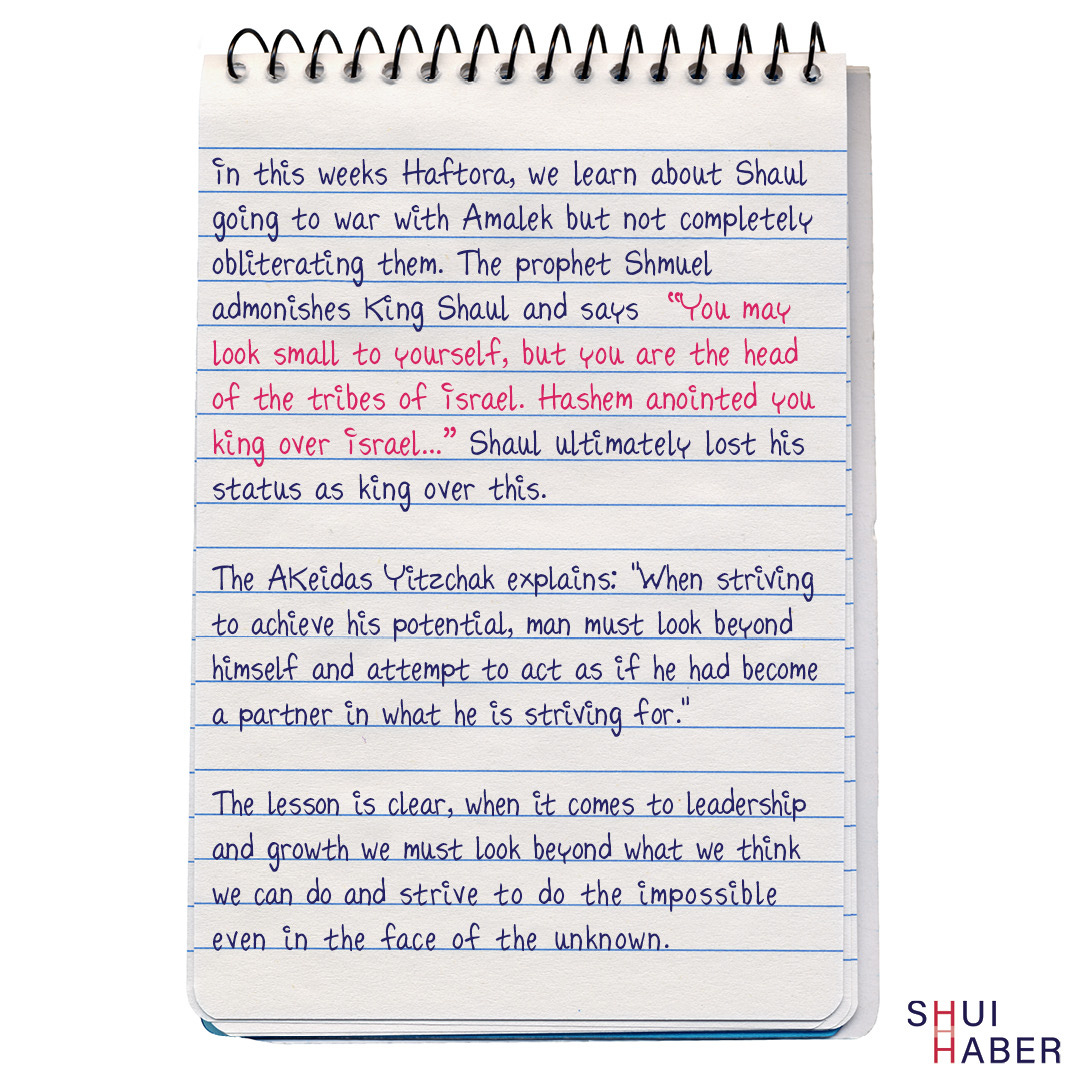 in this weeks Haftora, we learn about Shaul
going to war with Amalek but not completely
obliterating them. The prophet Shmuel
admonishes King Shaul and says “You may
look small to yourself, but you are the head
of the tribes of israel. Hashem anointed you
king over israel...” Shaul ultimately lost his
status as king over this.
The AKeidas Yitzchak explains: "When striving
to achieve his potential, man must look beyond
himself and attempt to act as if he had become
a partner in what he is striving for."
The lesson is clear, when it comes to leadership
and growth we must look beyond what we think
we can do and strive to do the impossible
even in the face of the unknown.
SHUI
HABER